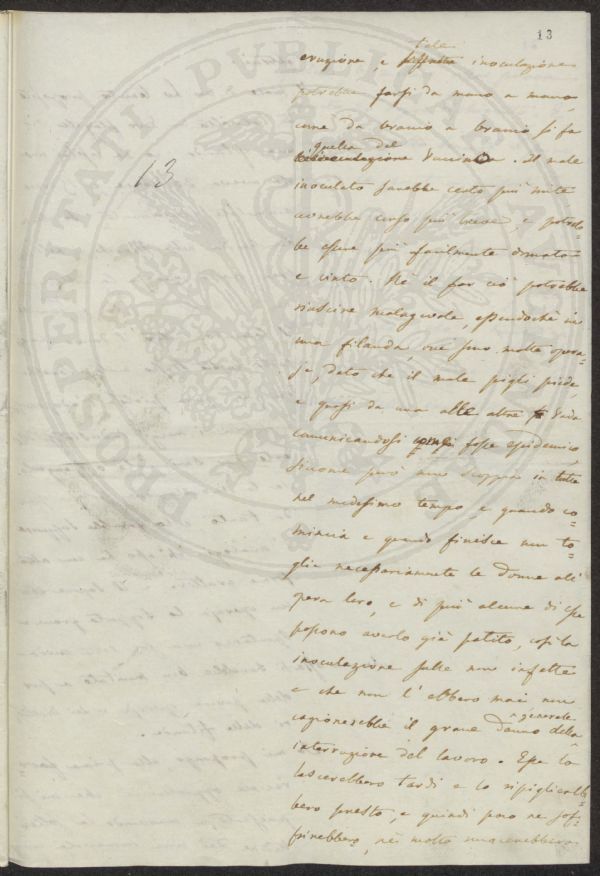 13
13
tale
eruzione e inoculazione
potrebbe farsi da mano a mano
come da braccio a braccio si fa
quella del
vaccino. Il male
inoculato sarebbe certo più mite
avrebbe corso più breve, e potreb=
be essere più facilmente domato
e vinto. Nè il far ciò potrebbe
riuscire malagevole, essendochè in
una filanda, ove sono molte opera=
je, dato che il male pigli piede,
e quasi da una alle altre vada
comunicandosi quasi fosse epidemico
siccome però non scoppia in tutte
nel medesimo tempo, e quando co=
mincia e quando finisce non to=
glie necessariamente le donne all'
opera loro, e di più alcune di esse
possono averlo già patito, così la
inoculazione sulle non infette
e che non l'ebbero mai, non
cagionerebbe il grave danno della
generale
interruzione del lavoro. Esse lo
lascerebbero tardi e lo ripiglierеb=
bero presto, e quindi poco ne sof=
frirebbero, nè molto nuocerebbero
PROSPERITATI PUBLICAE AUGENDAE